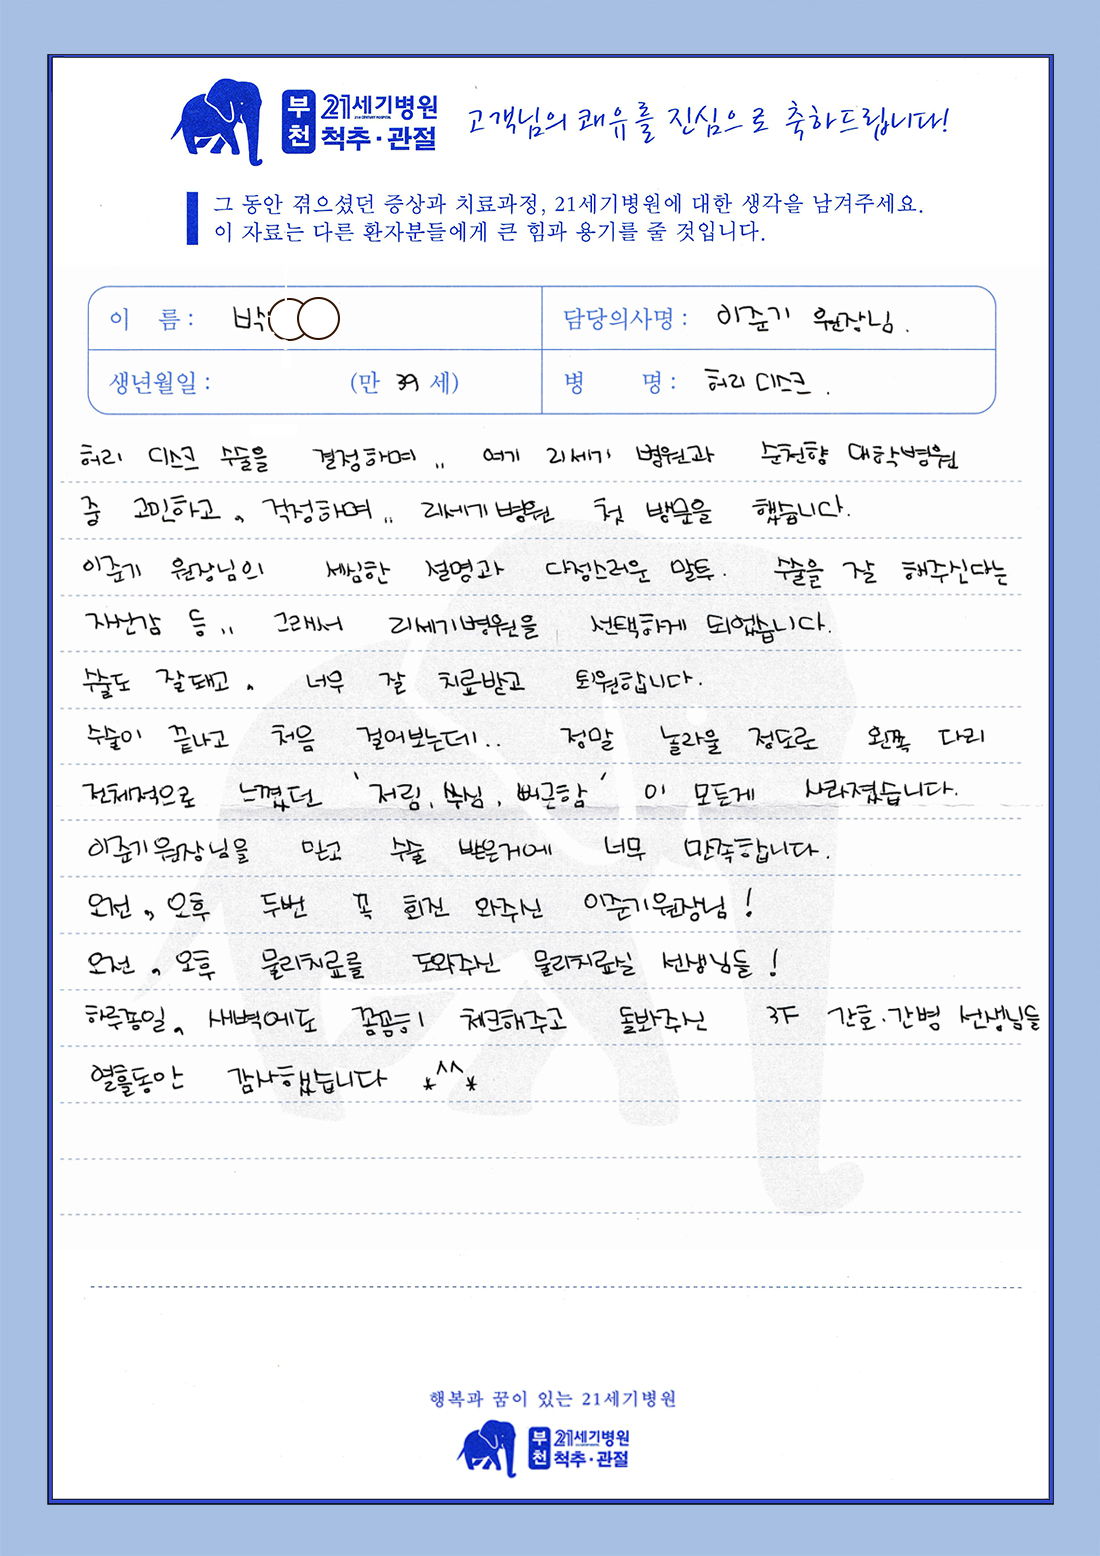 부천 21세기병원 척추·관절
고객님의 쾌유를 진심으로 축하드립니다!
그 동안 겪으셨던 증상과 치료과정, 21세기병원에 대한 생각을 남겨주세요.
이 자료는 다른 환자분들에게 큰 힘과 용기를 줄 것입니다.
이 름 : 박○○ 담당의사명 : 이준기 원장님.
생년월일 : (만 39 세) 병 명 : 허리 디스크.
허리 디스크 수술을 결정하며,, 여기 21세기 병원과 순천향 대학병원
중 고민하고, 걱정하며,, 21세기병원 첫 방문을 했습니다.
이준기 원장님의 세심한 설명과 다정스러운 말투. 수술을 잘 해주신다는
자신감 등,, 그래서 21세기병원을 선택하게 되었습니다.
수술도 잘돼고, 너무 잘 치료받고 퇴원합니다.
수술이 끝나고 처음 걸어보는데.. 정말 놀라울 정도로 왼쪽 다리
전체적으로 느꼈던 '저림, 쑤심, 뻐근함' 이 모든게 사라졌습니다.
이준기원장님을 믿고 수술 받은거에 너무 만족합니다.
오전, 오후 두번 꼭 회진 와주신 이준기원장님!
오전, 오후 물리치료를 도와주신 물리치료실 선생님들!
하루종일, 새벽에도 꼼꼼히 체크해주고 돌봐주신 3F 간호·간병 선생님들
열흘동안 감사했습니다 *^^*
행복과 꿈이 있는 21세기병원
부천 21세기병원 척추·관절